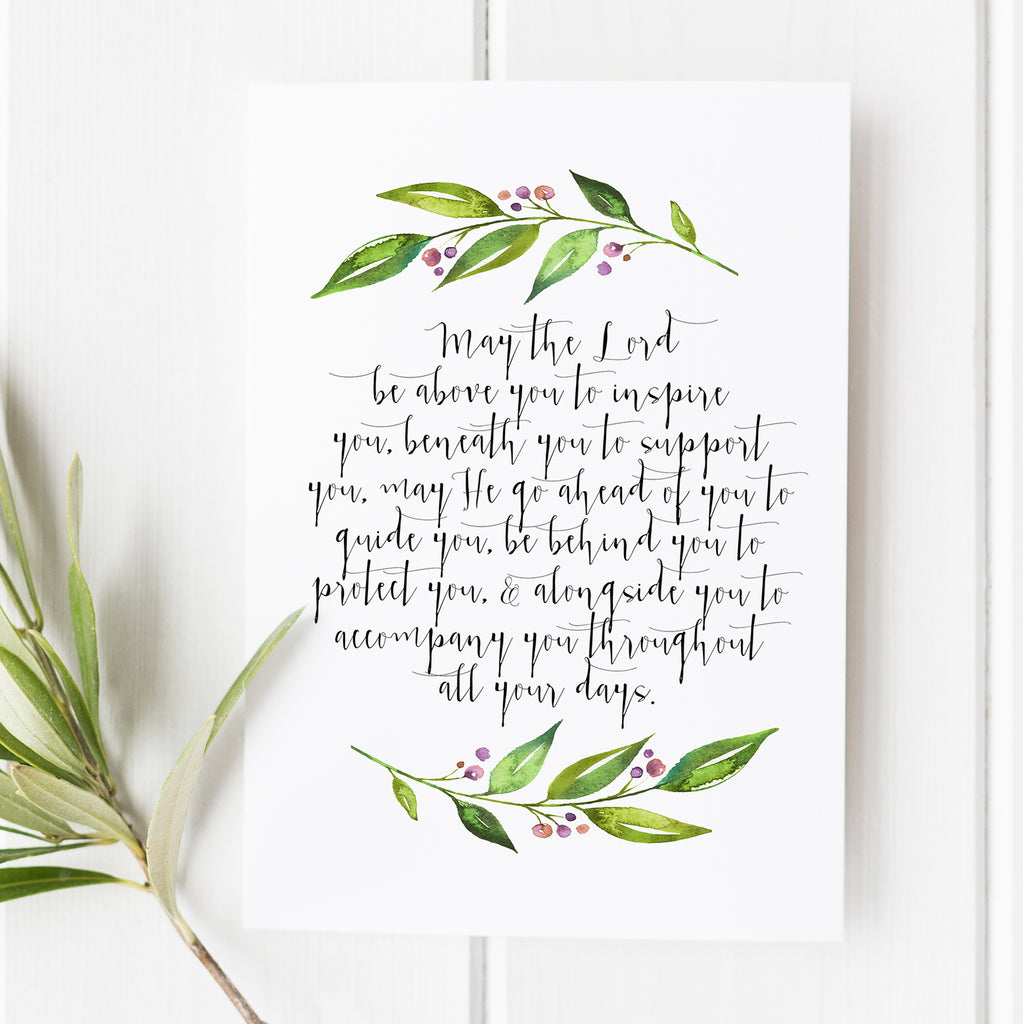 May the Lord
be above you to inspire
you, beneath you to support
you, may He go ahead of you to
guide you, be behind you to
protect you, & alongside you to
accompany you throughout
all your days.